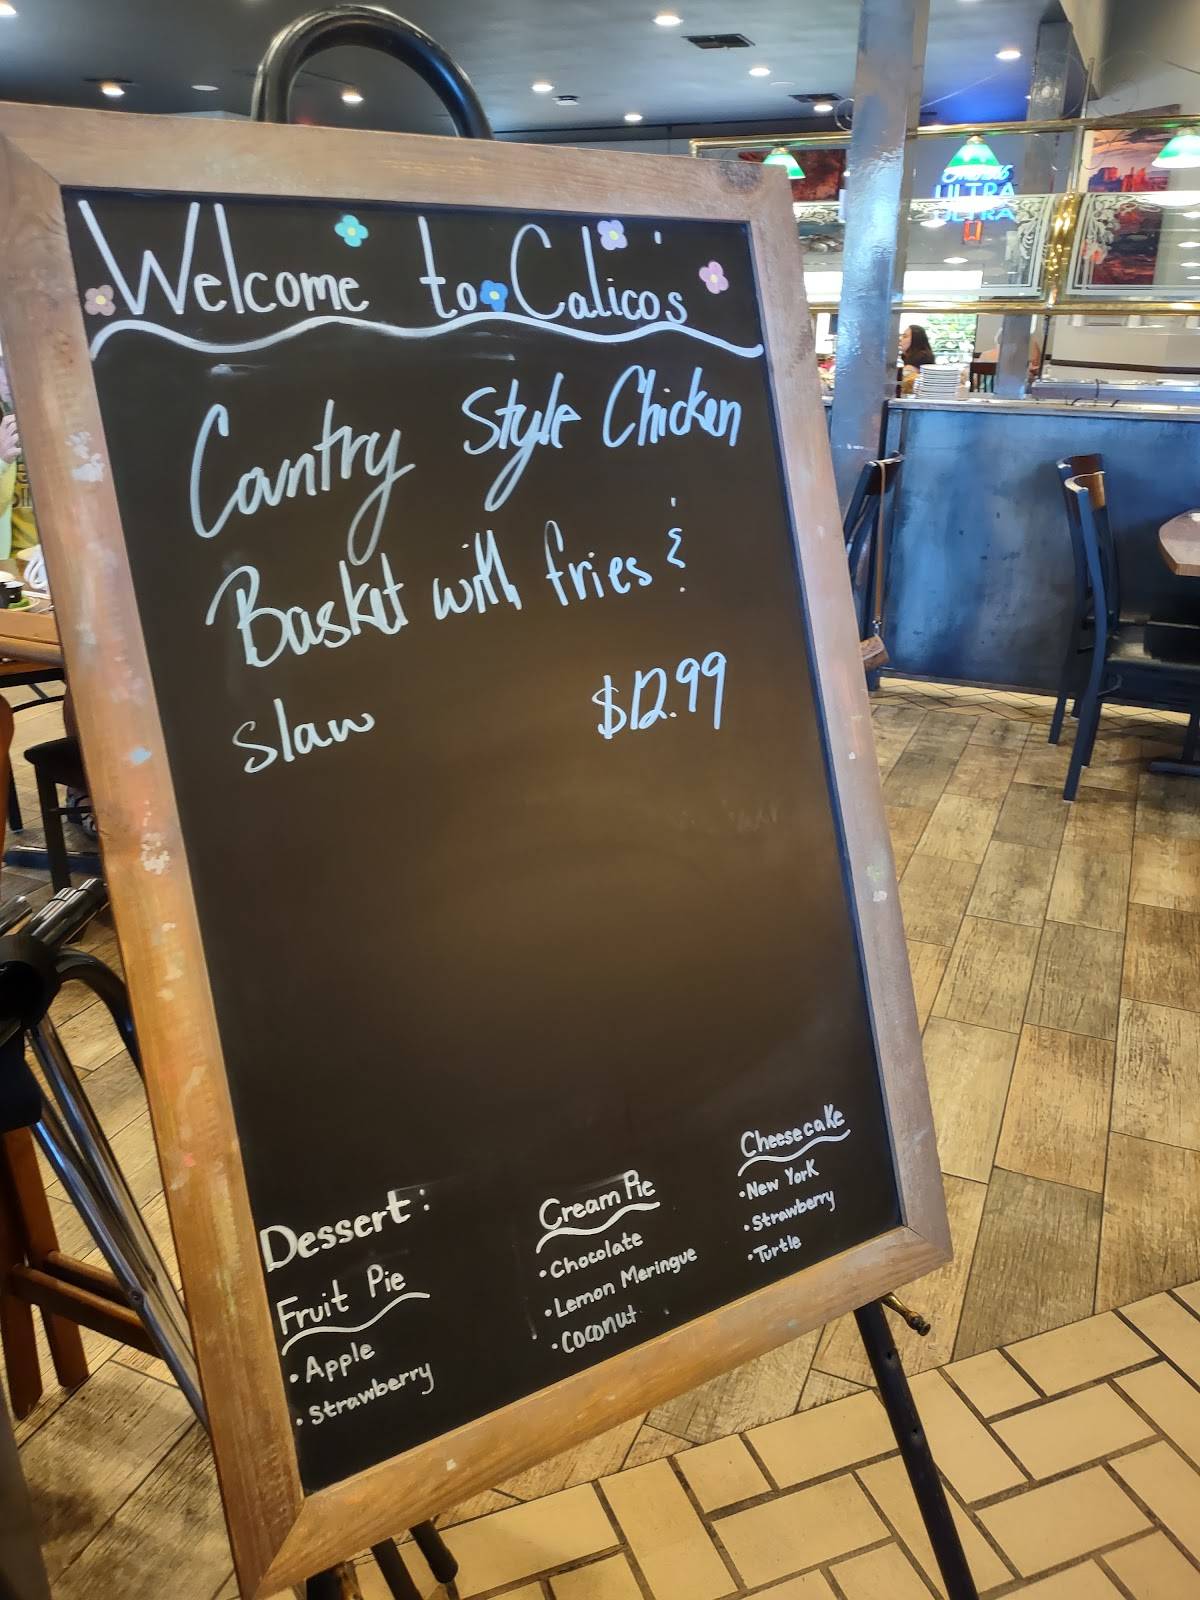 Welcome to Calico's
Country Style Chicken
Basket with fries &
slaw $12.99
Dessert:
Fruit Pie
• Apple
• Strawberry
Cream Pie
• Chocolate
• Lemon Meringue
• Coconut
Cheesecake
• New York
• Strawberry
• Turtle
ULTRA